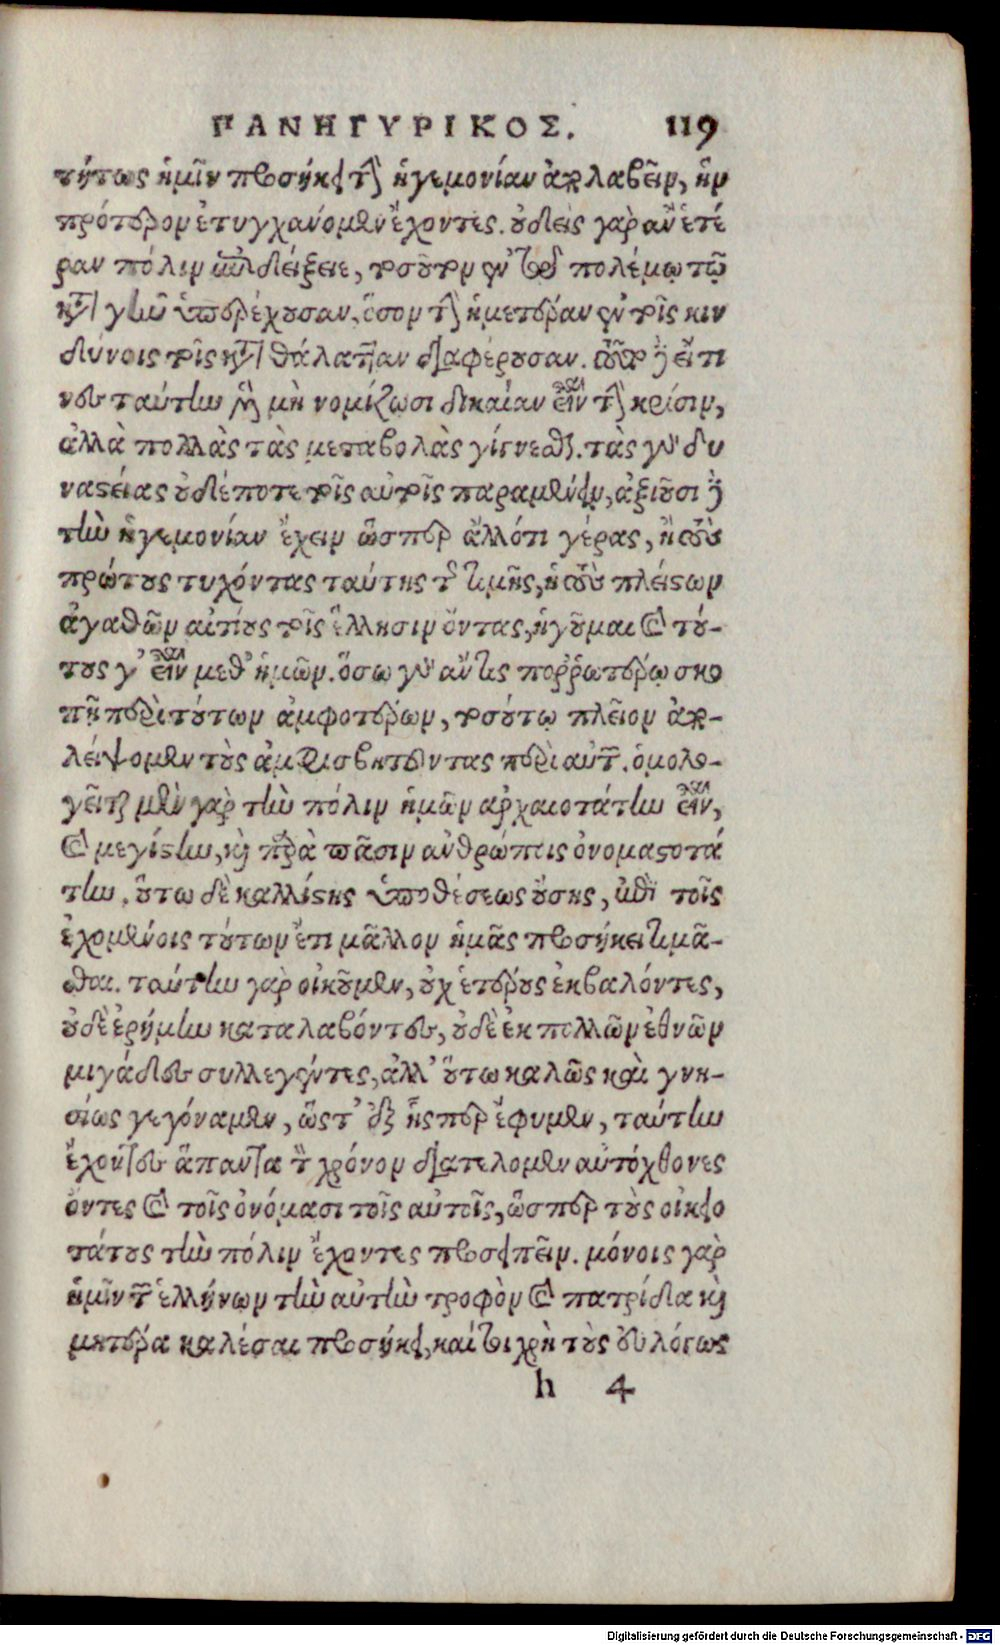 ΠΑΝΗΓΥΡΙΚΟΣ. 119
τούτως ἡμῖν προσήκει τὴν ἡγεμονίαν ἀπολαβεῖν, ἣν
πρότερον ἐτυγχάνομεν ἔχοντες. οὐδεὶς γὰρ ἂν ἑτέ
ραν πόλιν ἐπιδείξειε, τοσοῦτον ἐν τῷ πολέμῳ τῷ
κατὰ γῆν ὑπερέχουσαν, ὅσον τὴν ἡμετέραν ἐν τοῖς κιν
δύνοις τοῖς κατὰ θάλατταν διαφέρουσαν. τοῦτο δὲ εἴ τι
νες ταύτην μὲν μὴ νομίζωσι δικαίαν εἶναι τὴν κρίσιν,
ἀλλὰ πολλὰς τὰς μεταβολὰς γίγνεσθαι. τὰς γὰρ δυ
ναστείας οὐδέποτε τοῖς αὐτοῖς παραμένειν, ἀξιοῦσι δὲ
τὴν ἡγεμονίαν ἔχειν ὥσπερ ἄλλό τι γέρας, ἢ τοὺς
πρώτους τυχόντας ταύτης τῆς τιμῆς, ἢ τοὺς πλείστων
ἀγαθῶν αἰτίους τοῖς ἕλλησιν ὄντας, ἡγοῦμαι καὶ τού-
τους γ’ εἶναι μεθ’ ἡμῶν. ὅσῳ γὰρ ἄν τις πορρωτέρω σκο
πῇ περὶ τούτων ἀμφοτέρων, τοσούτῳ πλεῖον ἀπο-
λείψομεν τοὺς ἀμφισβητοῦντας περὶ αὐτῶν. ὁμολο-
γεῖται μὲν γὰρ τὴν πόλιν ἡμῶν ἀρχαιοτάτην εἶναι,
καὶ μεγίστην, καὶ παρὰ πᾶσιν ἀνθρώποις ὀνομαστοτά
την. οὕτω δὲ καλλίστης ὑποθέσεως οὔσης, ἐπὶ τοῖς
ἐχομένοις τούτων ἔτι μᾶλλον ἡμᾶς προσήκει τιμᾶ-
σθαι. ταύτην γὰρ οἰκοῦμεν, οὐχ ἑτέρους ἐκβαλόντες,
οὐδὲ ἐρήμην καταλαβόντες, οὐδὲ ἐκ πολλῶν ἐθνῶν
μιγάδες συλλεγέντες, ἀλλ’ οὕτω καλῶς καὶ γνη-
σίως γεγόναμεν, ὥστ’ ἐξ ἧσπερ ἔφυμεν, ταύτην
ἔχοντες ἅπαντα τὸν χρόνον διατελοῦμεν αὐτόχθονες
ὄντες καὶ τοῖς ὀνόμασι τοῖς αὐτοῖς, ὥσπερ τοὺς οἰκειο
τάτους τὴν πόλιν ἔχοντες προσειπεῖν. μόνοις γὰρ
ἡμῖν τῶν ἑλλήνων τὴν αὐτὴν τροφὸν καὶ πατρίδα καὶ
μητέρα καλέσαι προσήκει, καίτοι χρὴ τοὺς εὐλόγως
h 4
Digitalisierung gefördert durch die Deutsche Forschungsgemeinschaft - DFG